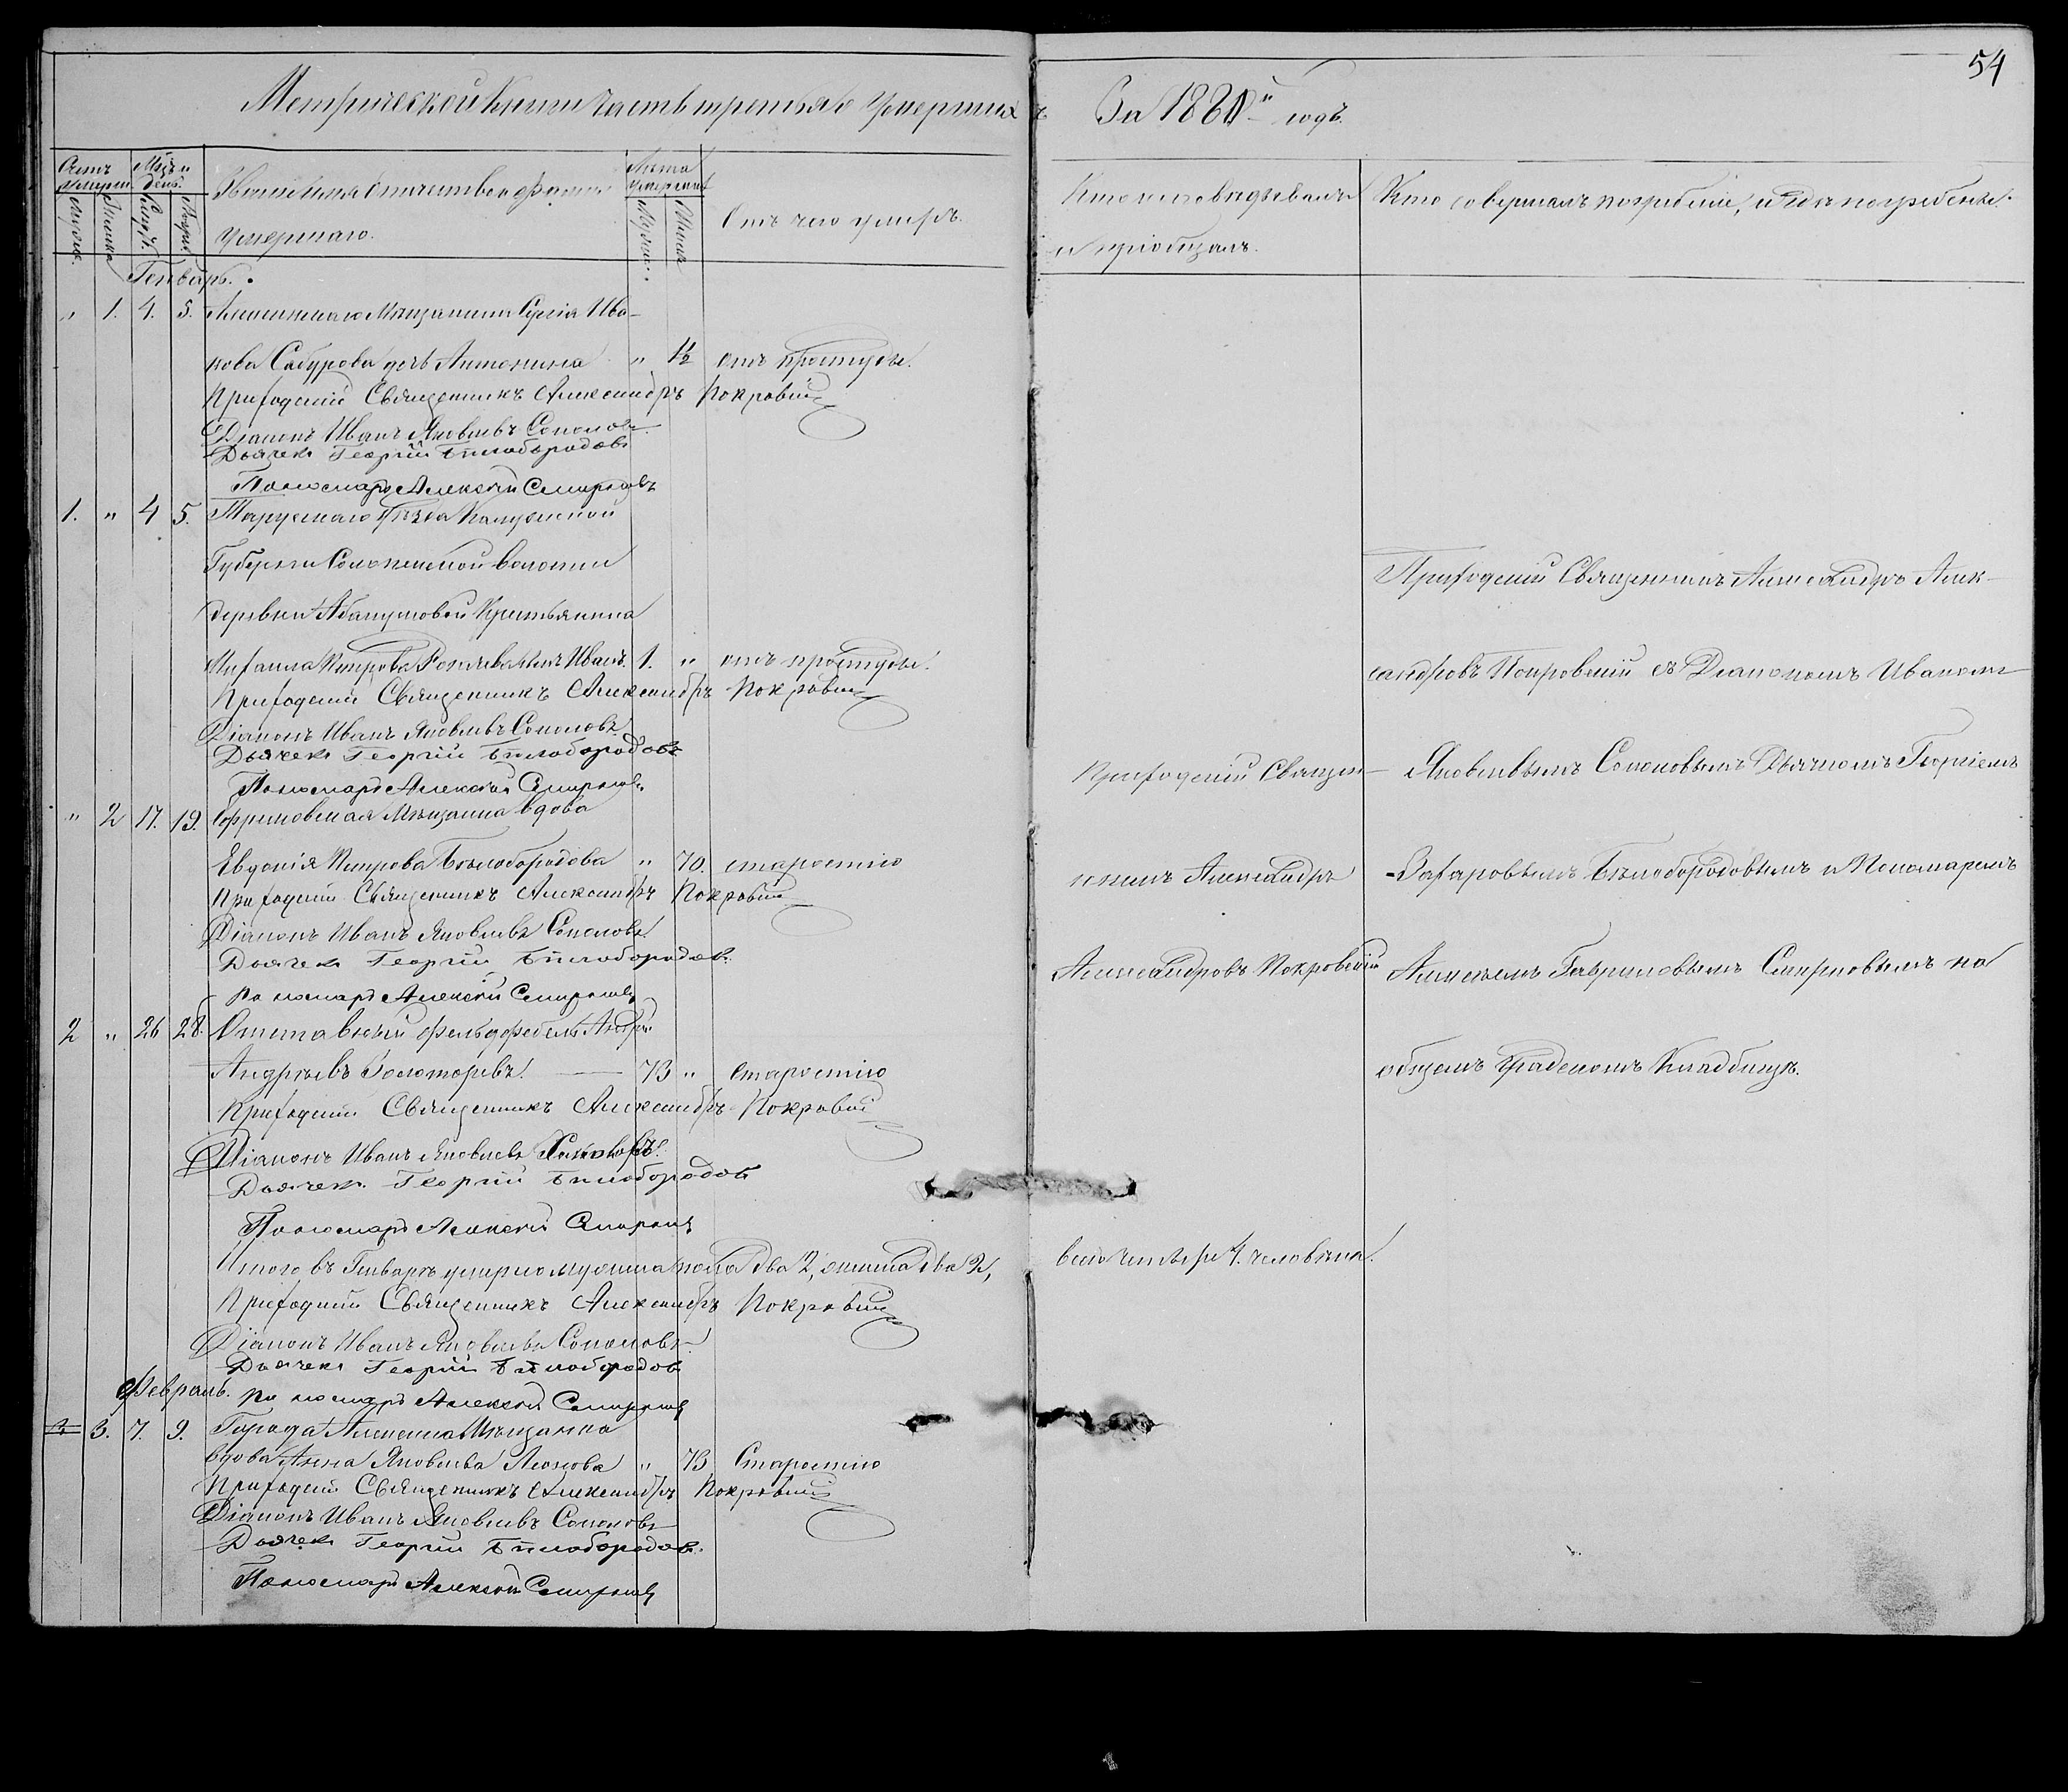 54
Метрической Книги часть третья о умершихъ
За 1881й годъ.
Счетъ умерш.
Мѣсяцъ и день.
Званіе имя отчество и фамилія умершаго.
Лѣта умершаго
Отъ чего умеръ.
Кто исповѣдывалъ и пріобщалъ.
Кто совершалъ погребеніе, и гдѣ погребены.
Мужск.
Женска
Мужск.
Женск
Генварь.
" 1. 4. 5. Алексинскаго Мѣщанина Сергія Ива-
нова Сабурова дочь Антонина " 1½ отъ простуды.
Приходскій Священникъ Александръ Покровскій
Діаконъ Иванъ Яковлевъ Соколовъ
Дьячекъ Георгій Бѣлобородовъ
Пономарь Алексѣй Смирновъ
1. " 4 5. Тарускаго Уѣзда Калужской
Губерніи Соломенской волости
деревни Абакумовой Крестьянина
Михаила Петрова сынъ Иванъ. 1. " отъ простуды.
Приходскій Священникъ Александръ Покровскій
Діаконъ Иванъ Яковлевъ Соколовъ
Дьячекъ Георгій Бѣлобородовъ
Пономарь Алексѣй Смирновъ
" 2 17. 19. Мѣщанка вдова
Евдокія Петрова Бѣлобородова " 70. старостію
Приходскій Священникъ Александръ Покровскій
Діаконъ Иванъ Яковлевъ Соколовъ
Дьячекъ Георгій Бѣлобородовъ
Пономарь Алексѣй Смирновъ
2 " 26 28. Отставной фельдфебель Андрей
Андреевъ 73 " старостію
Приходскій Священникъ Александръ Покровскій
Діаконъ Иванъ Яковлевъ Соколовъ
Дьячекъ Георгій Бѣлобородовъ
Пономарь Алексѣй Смирновъ
Итого въ Генварѣ умерло мужеска пола два 2, женска два 2, всего четыре 4. человѣка.
Приходскій Священникъ Александръ Покровскій
Діаконъ Иванъ Яковлевъ Соколовъ
Дьячекъ Георгій Бѣлобородовъ
Февраль. Пономарь Алексѣй Смирновъ
3. 7. 9. Города Алексина Мѣщанка
вдова Анна Яковлева " 73 Старостію
Приходскій Священникъ Александръ Покровскій
Діаконъ Иванъ Яковлевъ Соколовъ
Дьячекъ Георгій Бѣлобородовъ
Пономарь Алексѣй Смирновъ
Приходскій Священ-
никъ Александръ
Александровъ Покровскій
Приходскій Священникъ Александръ Алек-
сандровъ Покровскій съ Діакономъ Иваномъ
Яковлевымъ Соколовымъ Дьячкомъ Георгіемъ
Захаровымъ Бѣлобородовымъ и Пономаремъ
Алексѣемъ Гавриловымъ Смирновымъ на
общемъ градскомъ Кладбищѣ.